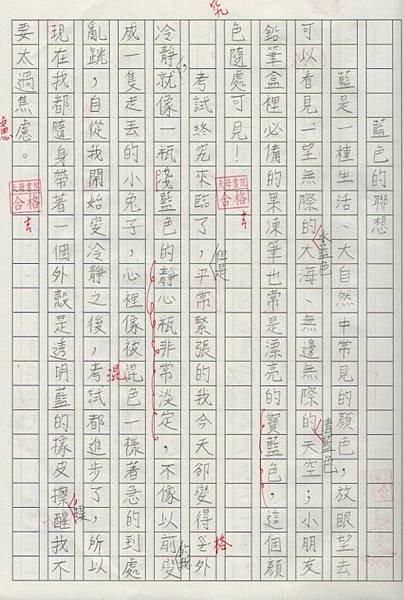 藍色的聯想
藍是一種生活、大自然中常見的顏色，放眼望去
可以看見一望無際的水藍色大海、無邊無際的天空；小朋友
鉛筆盒裡必備的果凍筆也常是漂亮的寶藍色，這個顏
色隨處可見！
合格
究
考試終究來臨了，但是平常緊張的我今天卻變得外
格
冷靜，就像一瓶淺藍色的靜心瓶非常淡定，不像以前變
成一隻走丟的小兔子，心裡像被混色一樣著急的到處
混
亂跳，自從我開始變冷靜之後，考試都進步了，所以
現在我都隨身帶著一個外殼是透明藍的橡皮擦提醒我不
要太過焦慮。
慮
合格